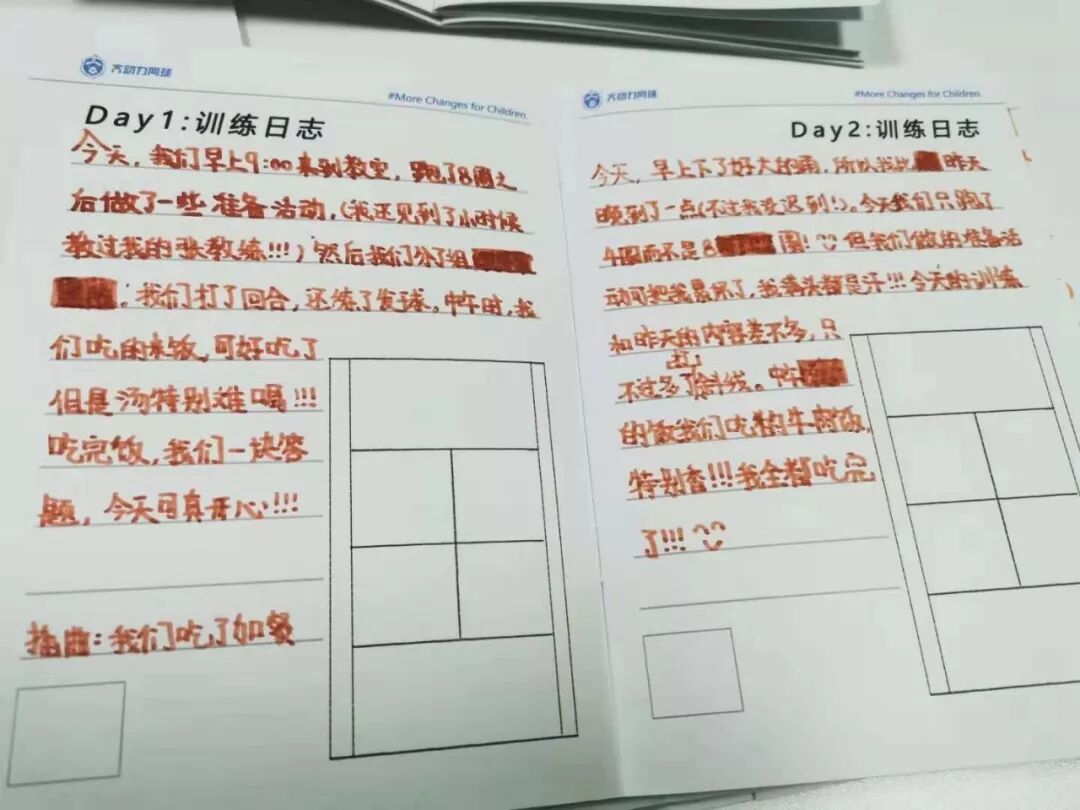 齐动力网球
#More Changes for Children.
Day1:训练日志
今天,我们早上9:00来到教室,跑了8圈之
后做了一些准备活动,(我还见到了小时候
教过我的张教练!!!)然后我们分了组
:我们打了回合,还练了发球。中午时,我
们吃的米饭,可好吃了
但是汤特别难喝!!!
吃完饭,我们一块答
题,今天可真开心!!!
插曲:我们吃了加餐
齐动力网球
#More Changes for Children.
Day2:训练日志
今天,早上下了好大的雨,所以我比昨天
晚到了一点(不过我没迟到!)。今天我们只跑了
4圈而不是8圈!但我们做的准备活
动可把我累坏了,我满头都是汗!!!今天的训练
和昨天的内容差不多,只
不过多了击斜线。中午
的饭我们吃的牛肉饭,
特别香!!!我全都吃完
了!!!